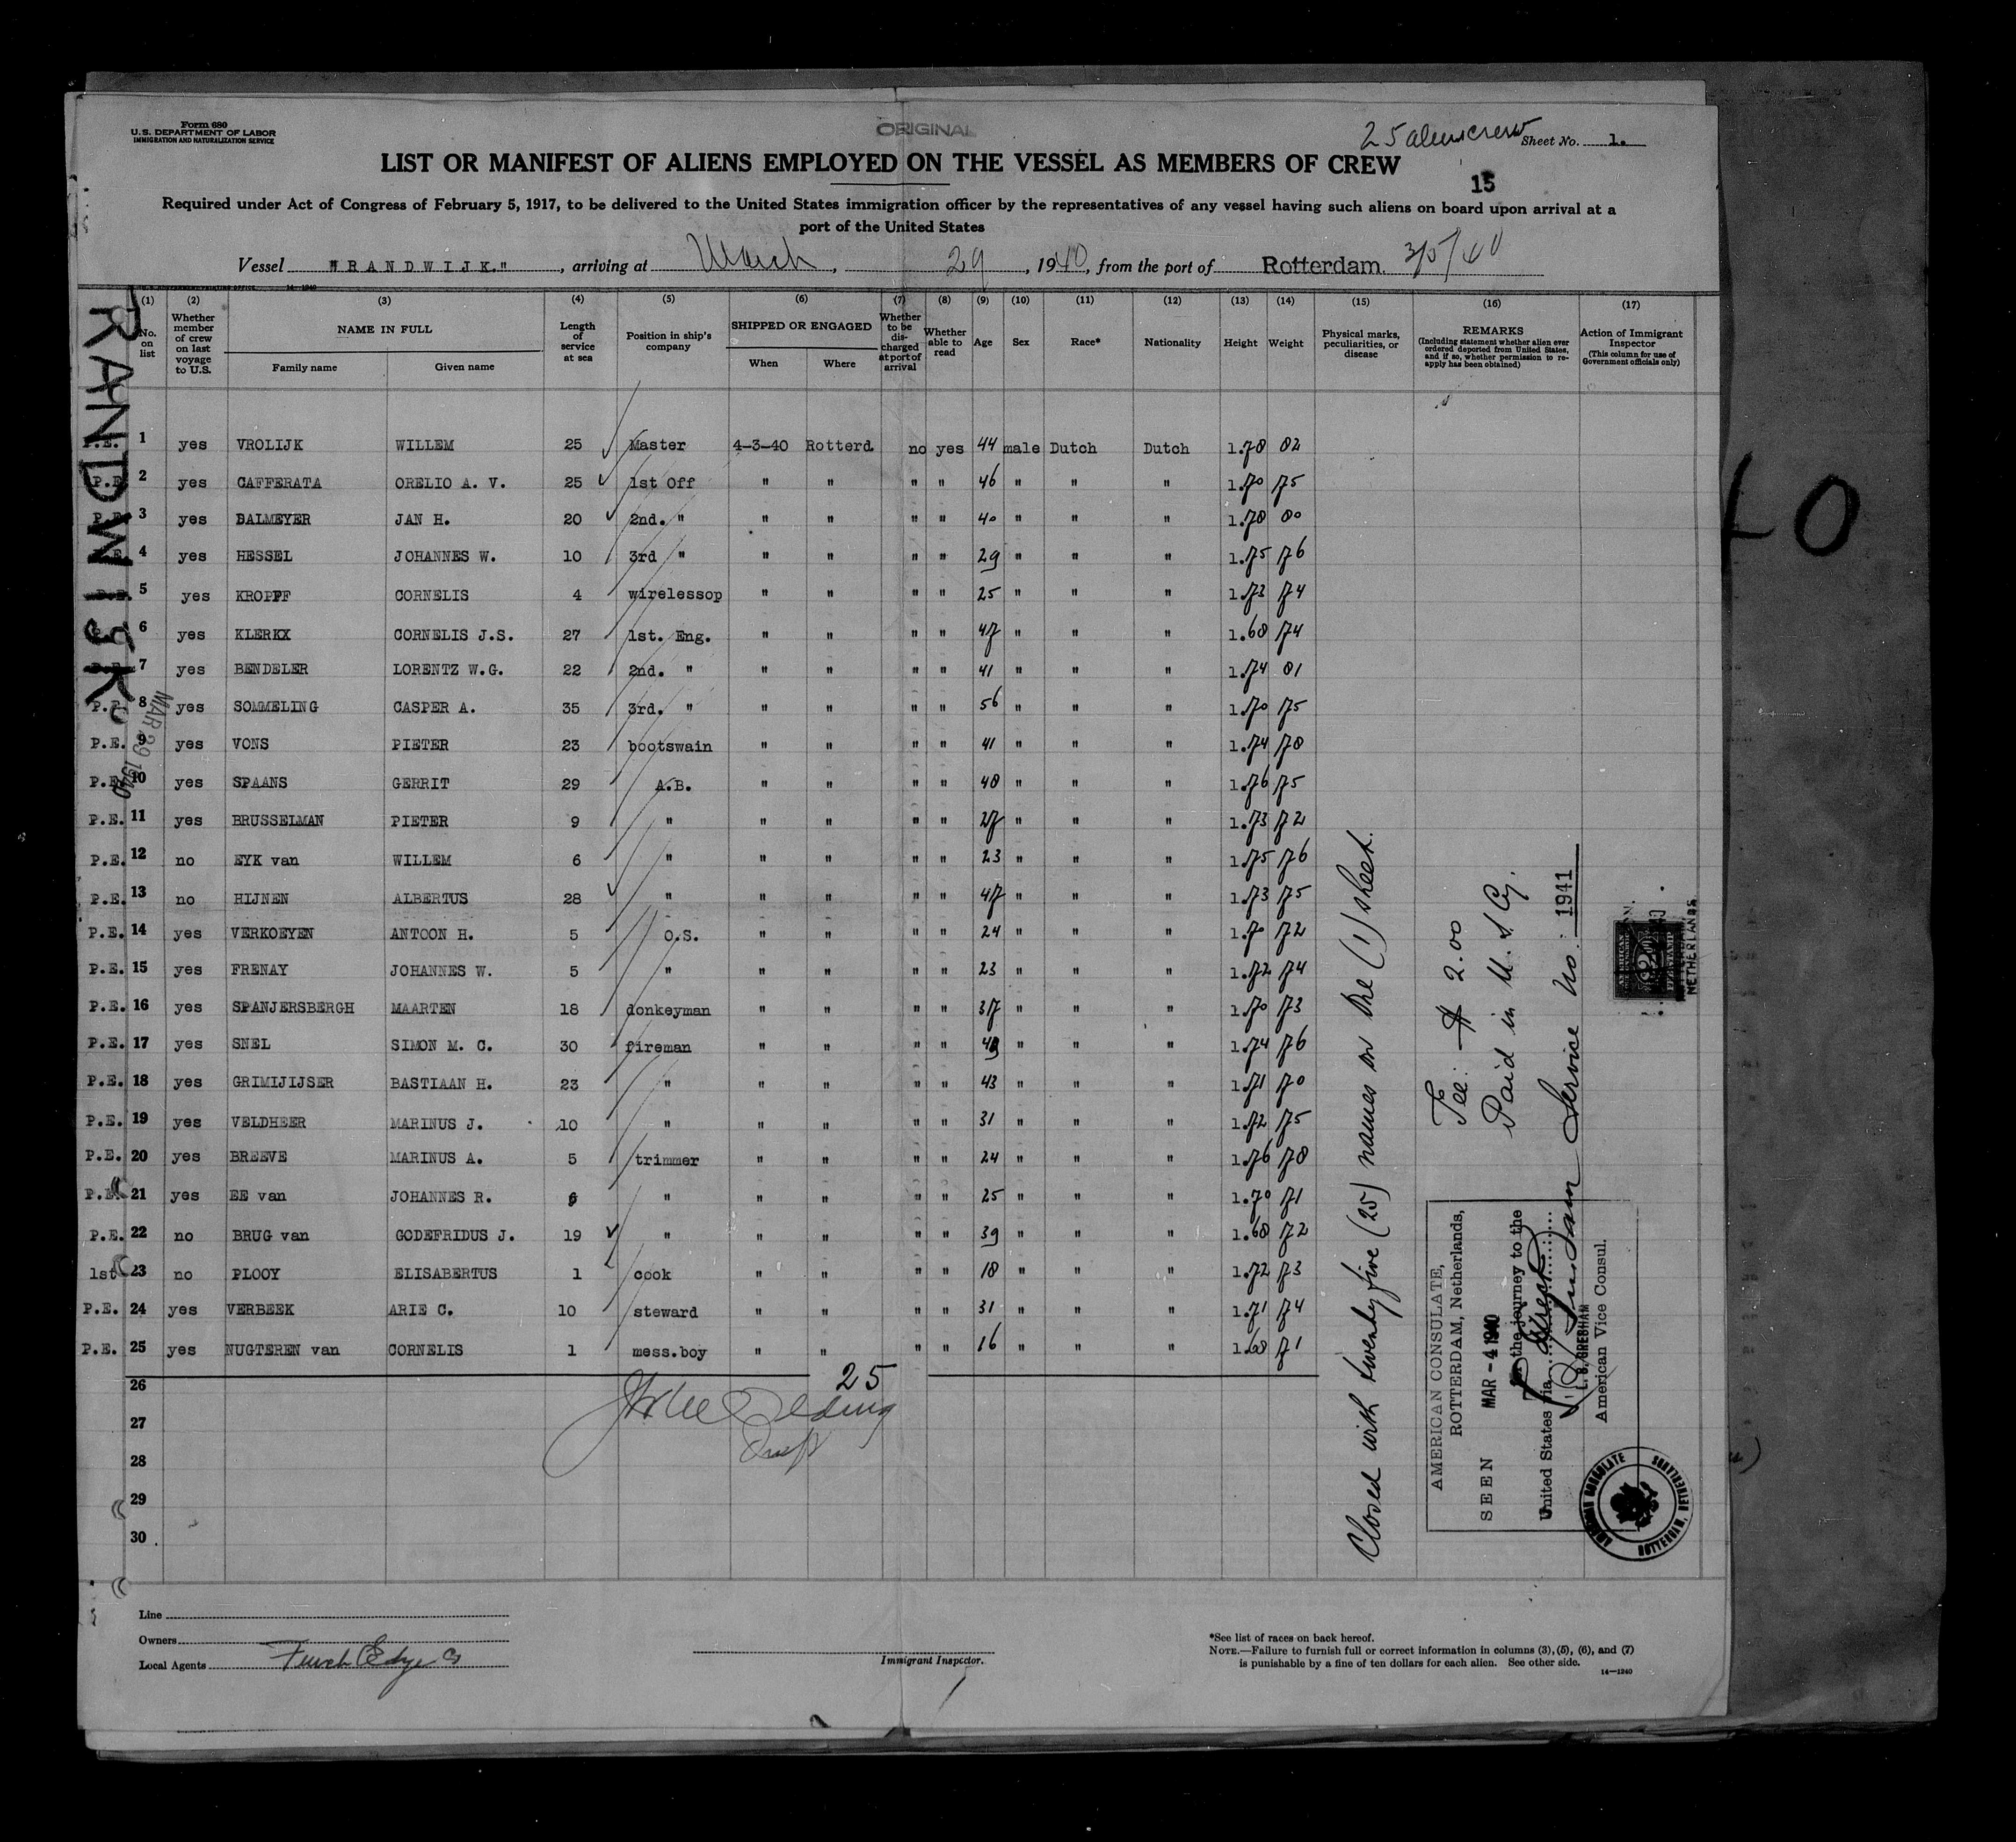 Form 680
U.S. DEPARTMENT OF LABOR
IMMIGRATION AND NATURALIZATION SERVICE
ORIGINAL
25 alien crew
Sheet No. 1.
LIST OR MANIFEST OF ALIENS EMPLOYED ON THE VESSEL AS MEMBERS OF CREW
15
Required under Act of Congress of February 5, 1917, to be delivered to the United States immigration officer by the representatives of any vessel having such aliens on board upon arrival at a
port of the United States
Vessel "RANDWIJK.", arriving at March, 29, 1940, from the port of Rotterdam. 3/5/40
(1) (2) (3) (4) (5) (6) (7) (8) (9) (10) (11) (12) (13) (14) (15) (16) (17)
No. on list
Whether member of crew on last voyage to U.S.
NAME IN FULL
Family name
Given name
Length of service at sea
Position in ship's company
SHIPPED OR ENGAGED
When
Where
Whether to be discharged at port of arrival
Whether able to read
Age
Sex
Race*
Nationality
Height
Weight
Physical marks, peculiarities, or disease
REMARKS
(Including statement whether alien ever ordered deported from United States, and if so, whether permission to reapply has been obtained)
Action of Immigrant Inspector
(This column for use of Government officials only)
RANDWIJK
MAR 29 1940
P.E. 1 yes VROLIJK WILLEM 25 Master 4-3-40 Rotterd. no yes 44 male Dutch Dutch 1.78 82
P.E. 2 yes CAFFERATA ORELIO A. V. 25 1st Off " " " " 46 " " " 1.70 75
P.E. 3 yes DALMEYER JAN H. 20 2nd. " " " " " 40 " " " 1.78 80
P.E. 4 yes HESSEL JOHANNES W. 10 3rd " " " " " 29 " " " 1.75 76
P.E. 5 yes KROPFF CORNELIS 4 wirelessop " " " " 25 " " " 1.73 74
6 yes KLERKX CORNELIS J.S. 27 1st. Eng. " " " " 47 " " " 1.68 74
P.E. 7 yes BENDELER LORENTZ W.G. 22 2nd. " " " " " 41 " " " 1.74 81
P.E. 8 yes SOMMELING CASPER A. 35 3rd. " " " " " 56 " " " 1.70 75
P.E. 9 yes VONS PIETER 23 bootswain " " " " 41 " " " 1.74 78
P.E. 10 yes SPAANS GERRIT 29 A.B. " " " " 48 " " " 1.76 75
P.E. 11 yes BRUSSELMAN PIETER 9 " " " " " 27 " " " 1.73 72
P.E. 12 no EYK van WILLEM 6 " " " " " 23 " " " 1.75 76
P.E. 13 no HIJNEN ALBERTUS 28 " " " " " 47 " " " 1.73 75
P.E. 14 yes VERKOEYEN ANTOON H. 5 O.S. " " " " 24 " " " 1.70 72
P.E. 15 yes FRENAY JOHANNES W. 5 " " " " " 23 " " " 1.72 74
P.E. 16 yes SPANJERSBERGH MAARTEN 18 donkeyman " " " " 37 " " " 1.70 73
P.E. 17 yes SNEL SIMON M. C. 30 fireman " " " " " " " 1.74 76
P.E. 18 yes GRIMIJIJSER BASTIAAN H. 23 " " " " " 43 " " " 1.71 70
P.E. 19 yes VELDHEER MARINUS J. 10 " " " " " 31 " " " 1.72 75
P.E. 20 yes BREEVE MARINUS A. 5 trimmer " " " " 24 " " " 1.76 78
P.E. 21 yes EE van JOHANNES R. 6 " " " " " 25 " " " 1.70 71
P.E. 22 no BRUG van GODEFRIDUS J. 19 " " " " " 39 " " " 1.68 72
1st 23 no PLOOY ELISABERTUS 1 cook " " " " 18 " " " 1.72 73
P.E. 24 yes VERBEEK ARIE C. 10 steward " " " " 31 " " " 1.71 74
P.E. 25 yes NUGTEREN van CORNELIS 1 mess.boy " " " " 16 " " " 1.68 71
26
27
28
29
30
25
Closed with twenty five (25) names on the (1) sheet.
Fee: $ 2.00
Paid in U. S. Cy.
Service No: 1941
AMERICAN CONSULATE,
ROTTERDAM, Netherlands,
SEEN MAR - 4 1940
For the journey to the
United States via direct
L. S. GRESHAM
American Vice Consul.
AMERICAN CONSULATE
ROTTERDAM, NETHERLANDS
NETHERLANDS
Line
Owners
Local Agents Funch Edye Co
Immigrant Inspector.
*See list of races on back hereof.
NOTE.—Failure to furnish full or correct information in columns (3), (5), (6), and (7)
is punishable by a fine of ten dollars for each alien. See other side.
14—1240
40